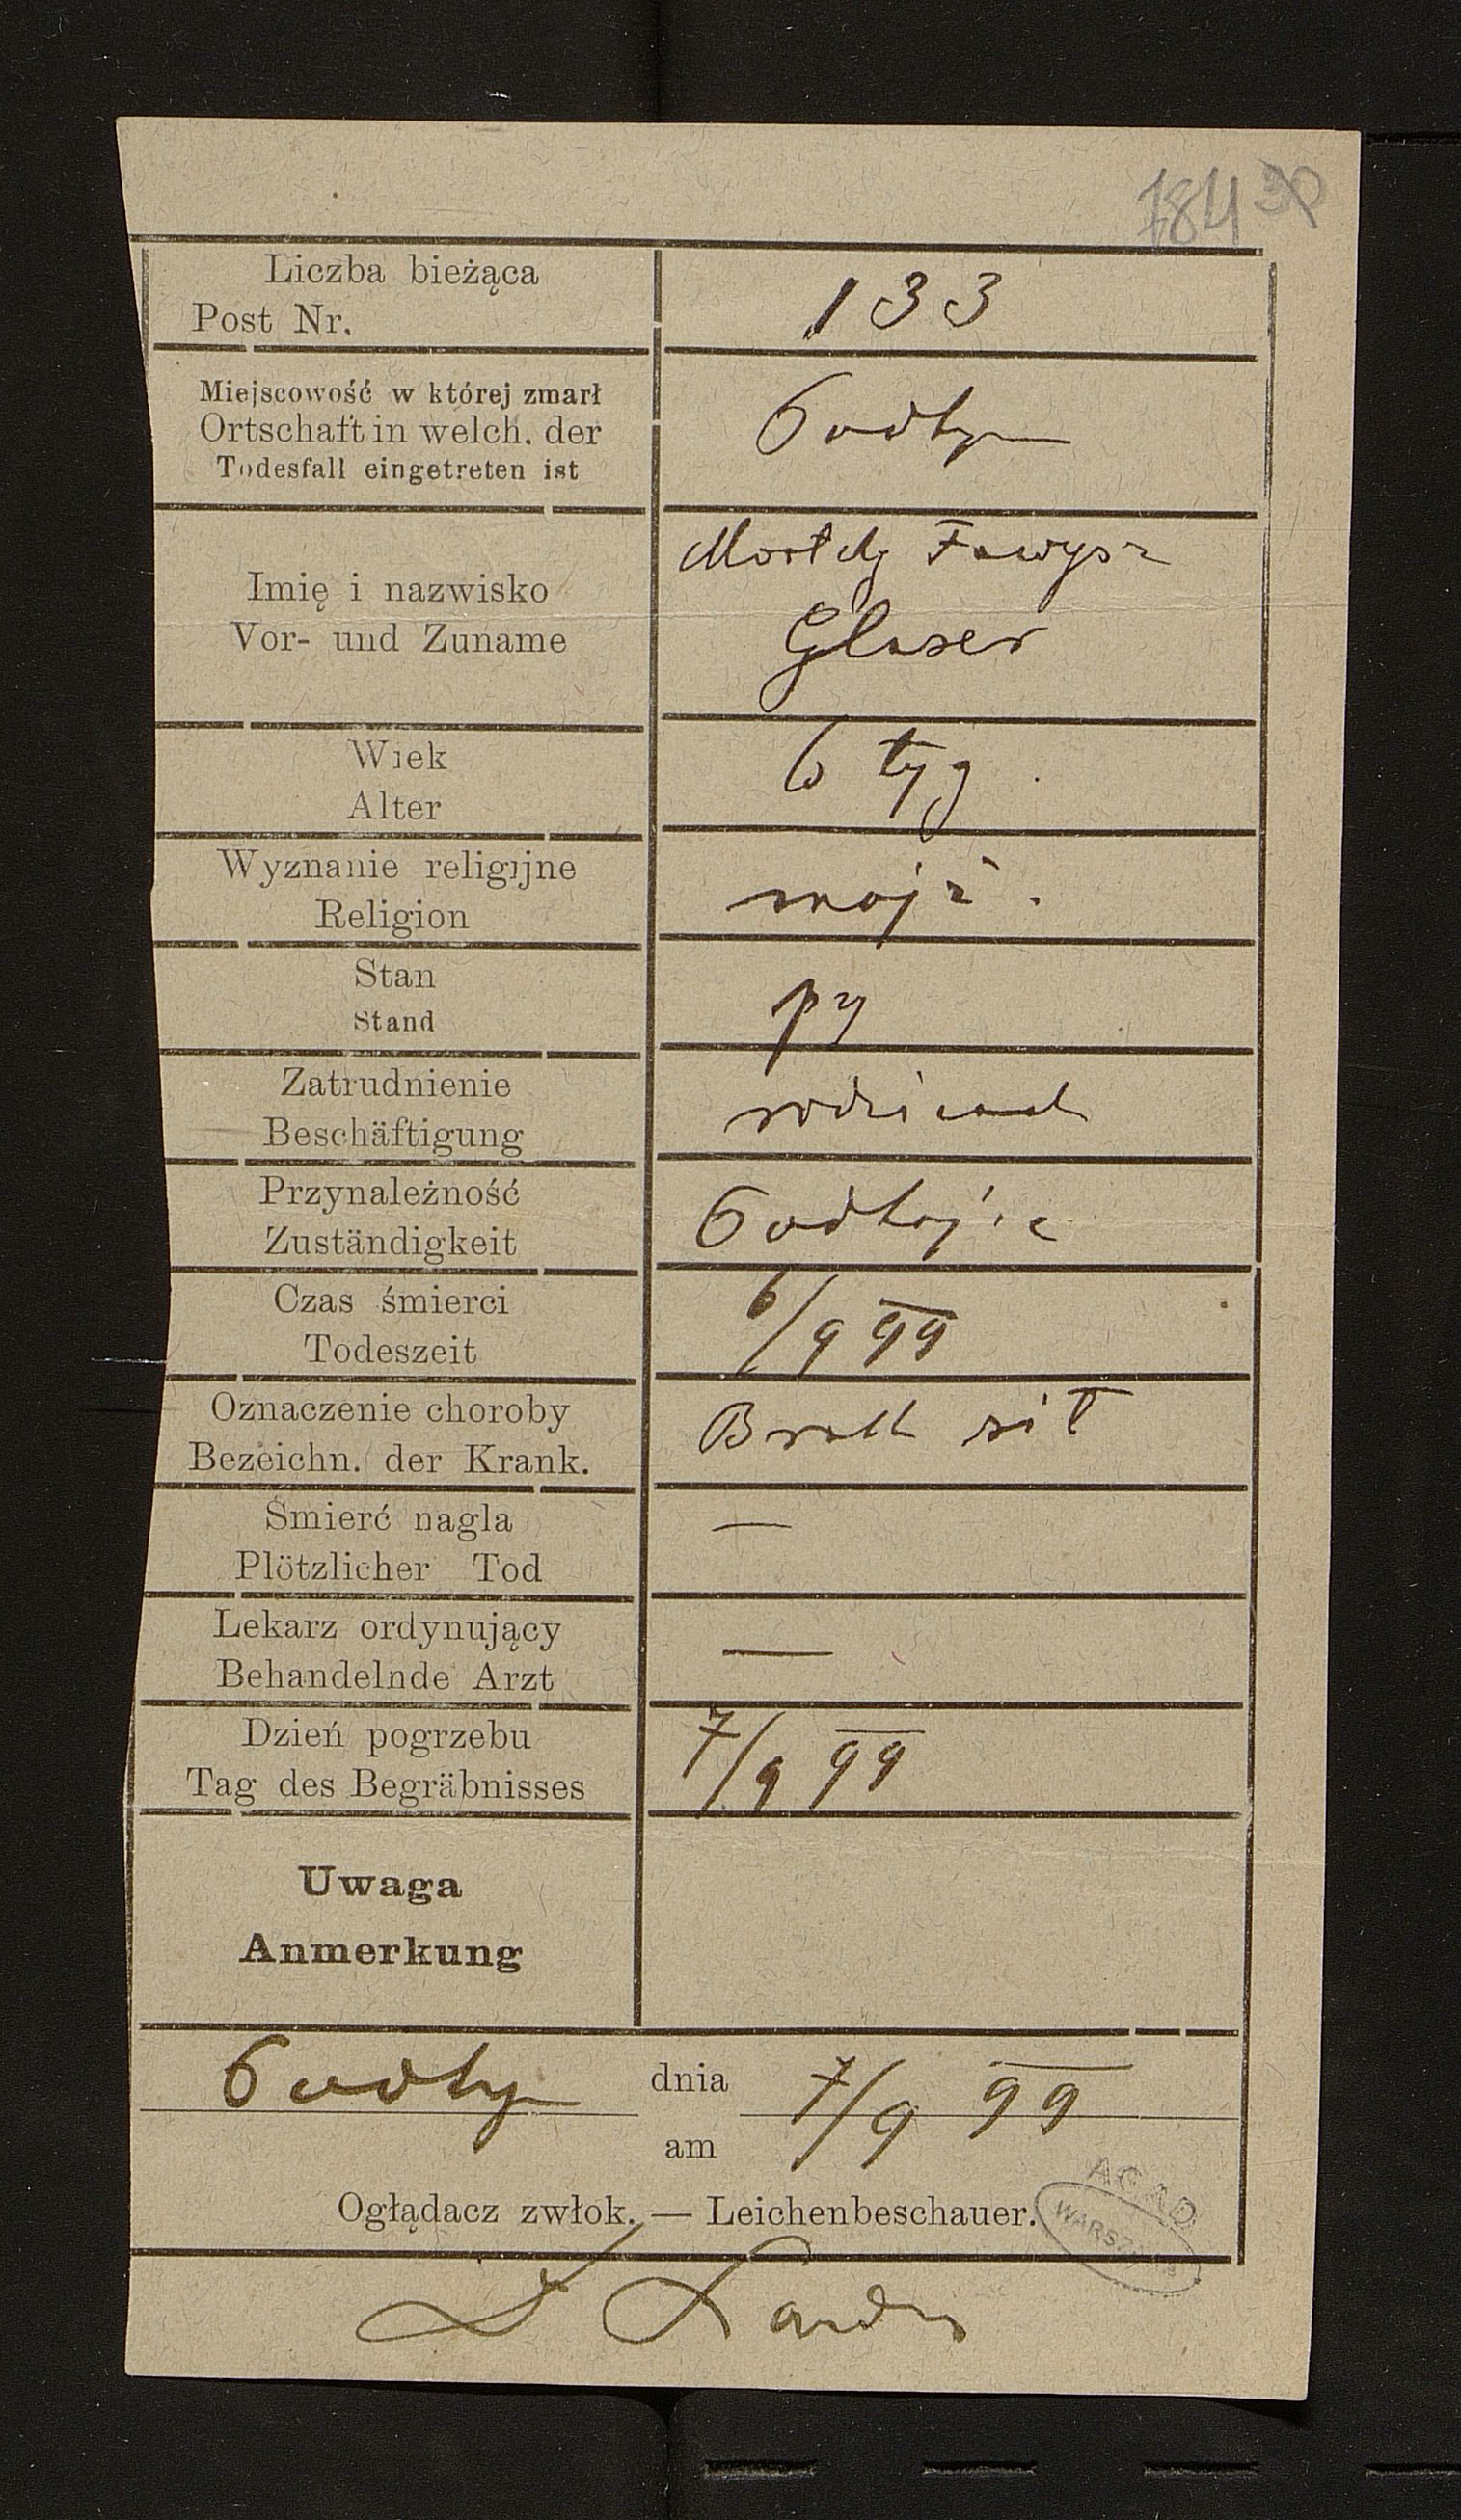 784
Liczba bieżąca
Post Nr.
133
Miejscowość w której zmarł
Ortschaft in welch. der
Todesfall eingetreten ist
Imię i nazwisko
Vor- und Zuname
Glaser
Wiek
Alter
6 tyg.
Wyznanie religijne
Religion
mojż.
Stan
Stand
py
Zatrudnienie
Beschäftigung
Przynależność
Zuständigkeit
Podhajce
Czas śmierci
Todeszeit
6/9 99
Oznaczenie choroby
Bezeichn. der Krank.
Brak sił
Śmierć nagla
Plötzlicher Tod
—
Lekarz ordynujący
Behandelnde Arzt
—
Dzień pogrzebu
Tag des Begräbnisses
7/9 99
Uwaga
Anmerkung
dnia
am
7/9 99
Oglądacz zwłok. — Leichenbeschauer.
AGAD
WARSZAWA